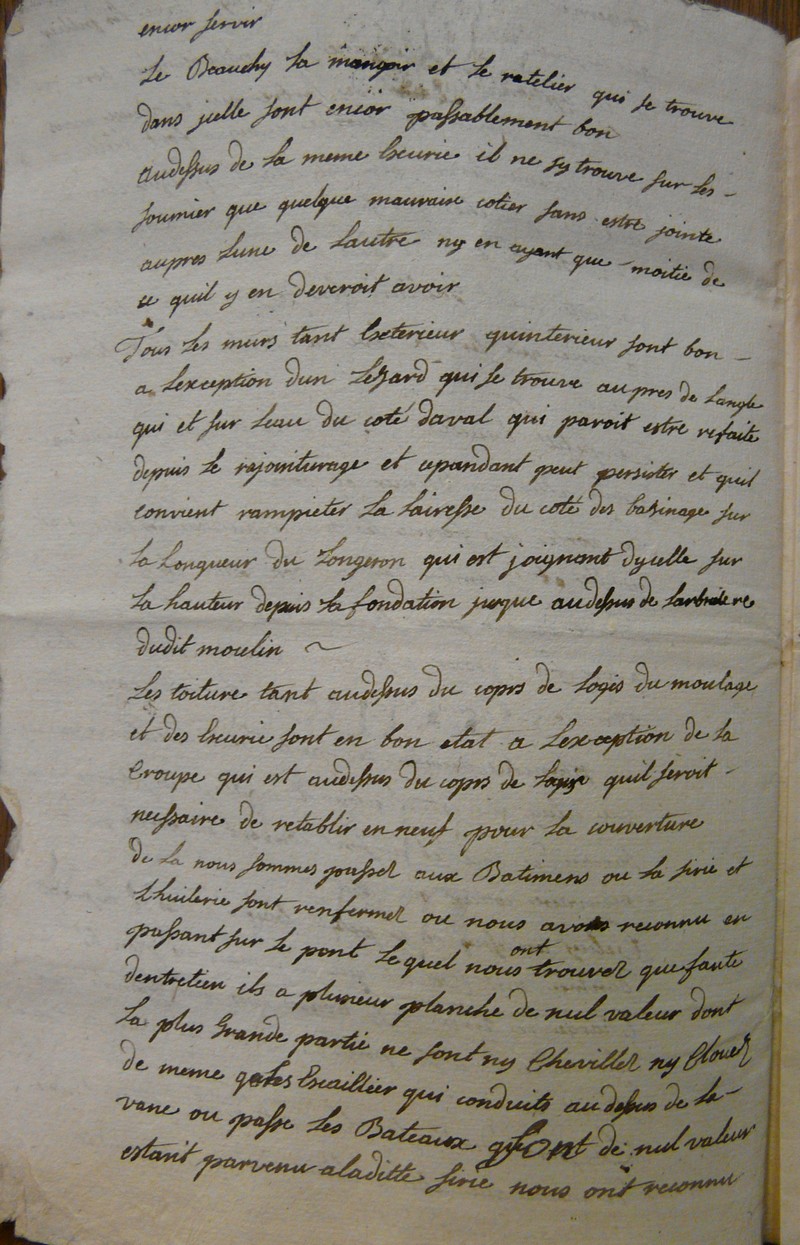 encor servir
Le Beauchy la mangoir et le ratelier qui se trouve
dans jcelle sont encor passablement bon
audessus de la meme Escurie il ne sy trouve sur les -
soumier que quelque mauvaise cotier sans estre jointe
aupres lune de lautre ny en ayant que moitie de
ce quil y en deveroit avoir
Tous les murs tant Exterieur quinterieur sont bon -
a lexception dun Lezard qui se trouve aupres de langle
qui et sur leau du coté daval qui paroit estre refaite
depuis le rejointurage et cepandant peut persister et quil
convient rampieter la lairesse du coté des basinage sur
la Longueur du Longeron qui est joignant dycelle sur
la hauteur depuis la fondation jusque audessus de larbriere
dudit moulin ~
Les toiture tant audessus du coprs de logis du moulage
et des Escurie sont en bon etat a lexception de la
Croupe qui est audessus du coprs de logis quil seroit -
nessaire de retablir en neuf pour la couverture
de la nous sommes passez aux Batimens ou la sirie et
lhuilerie sont renfermez ou nous avons reconnu en
passant sur le pont lequel nous ont trouvez que faute
dentretien ils a plusieur planche de nul valeur dont
la plus Grande partie ne sont ny Chevillez ny Clouez
de meme que les Escaillier qui conduits au dessus de la -
vane ou passe les Bateaux qui sont de nul valeur
estant parvenu a laditte sirie nous ont reconnu